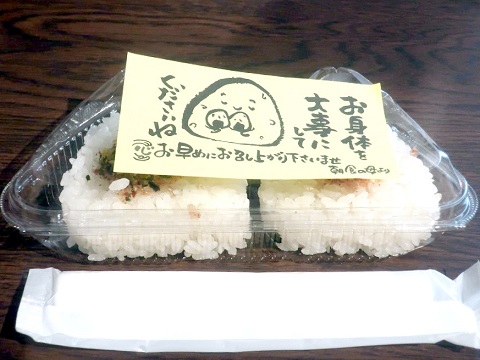 お身体を
大事に
して
くださいね
お早めにお召し上がり下さいませ
朝食の母より